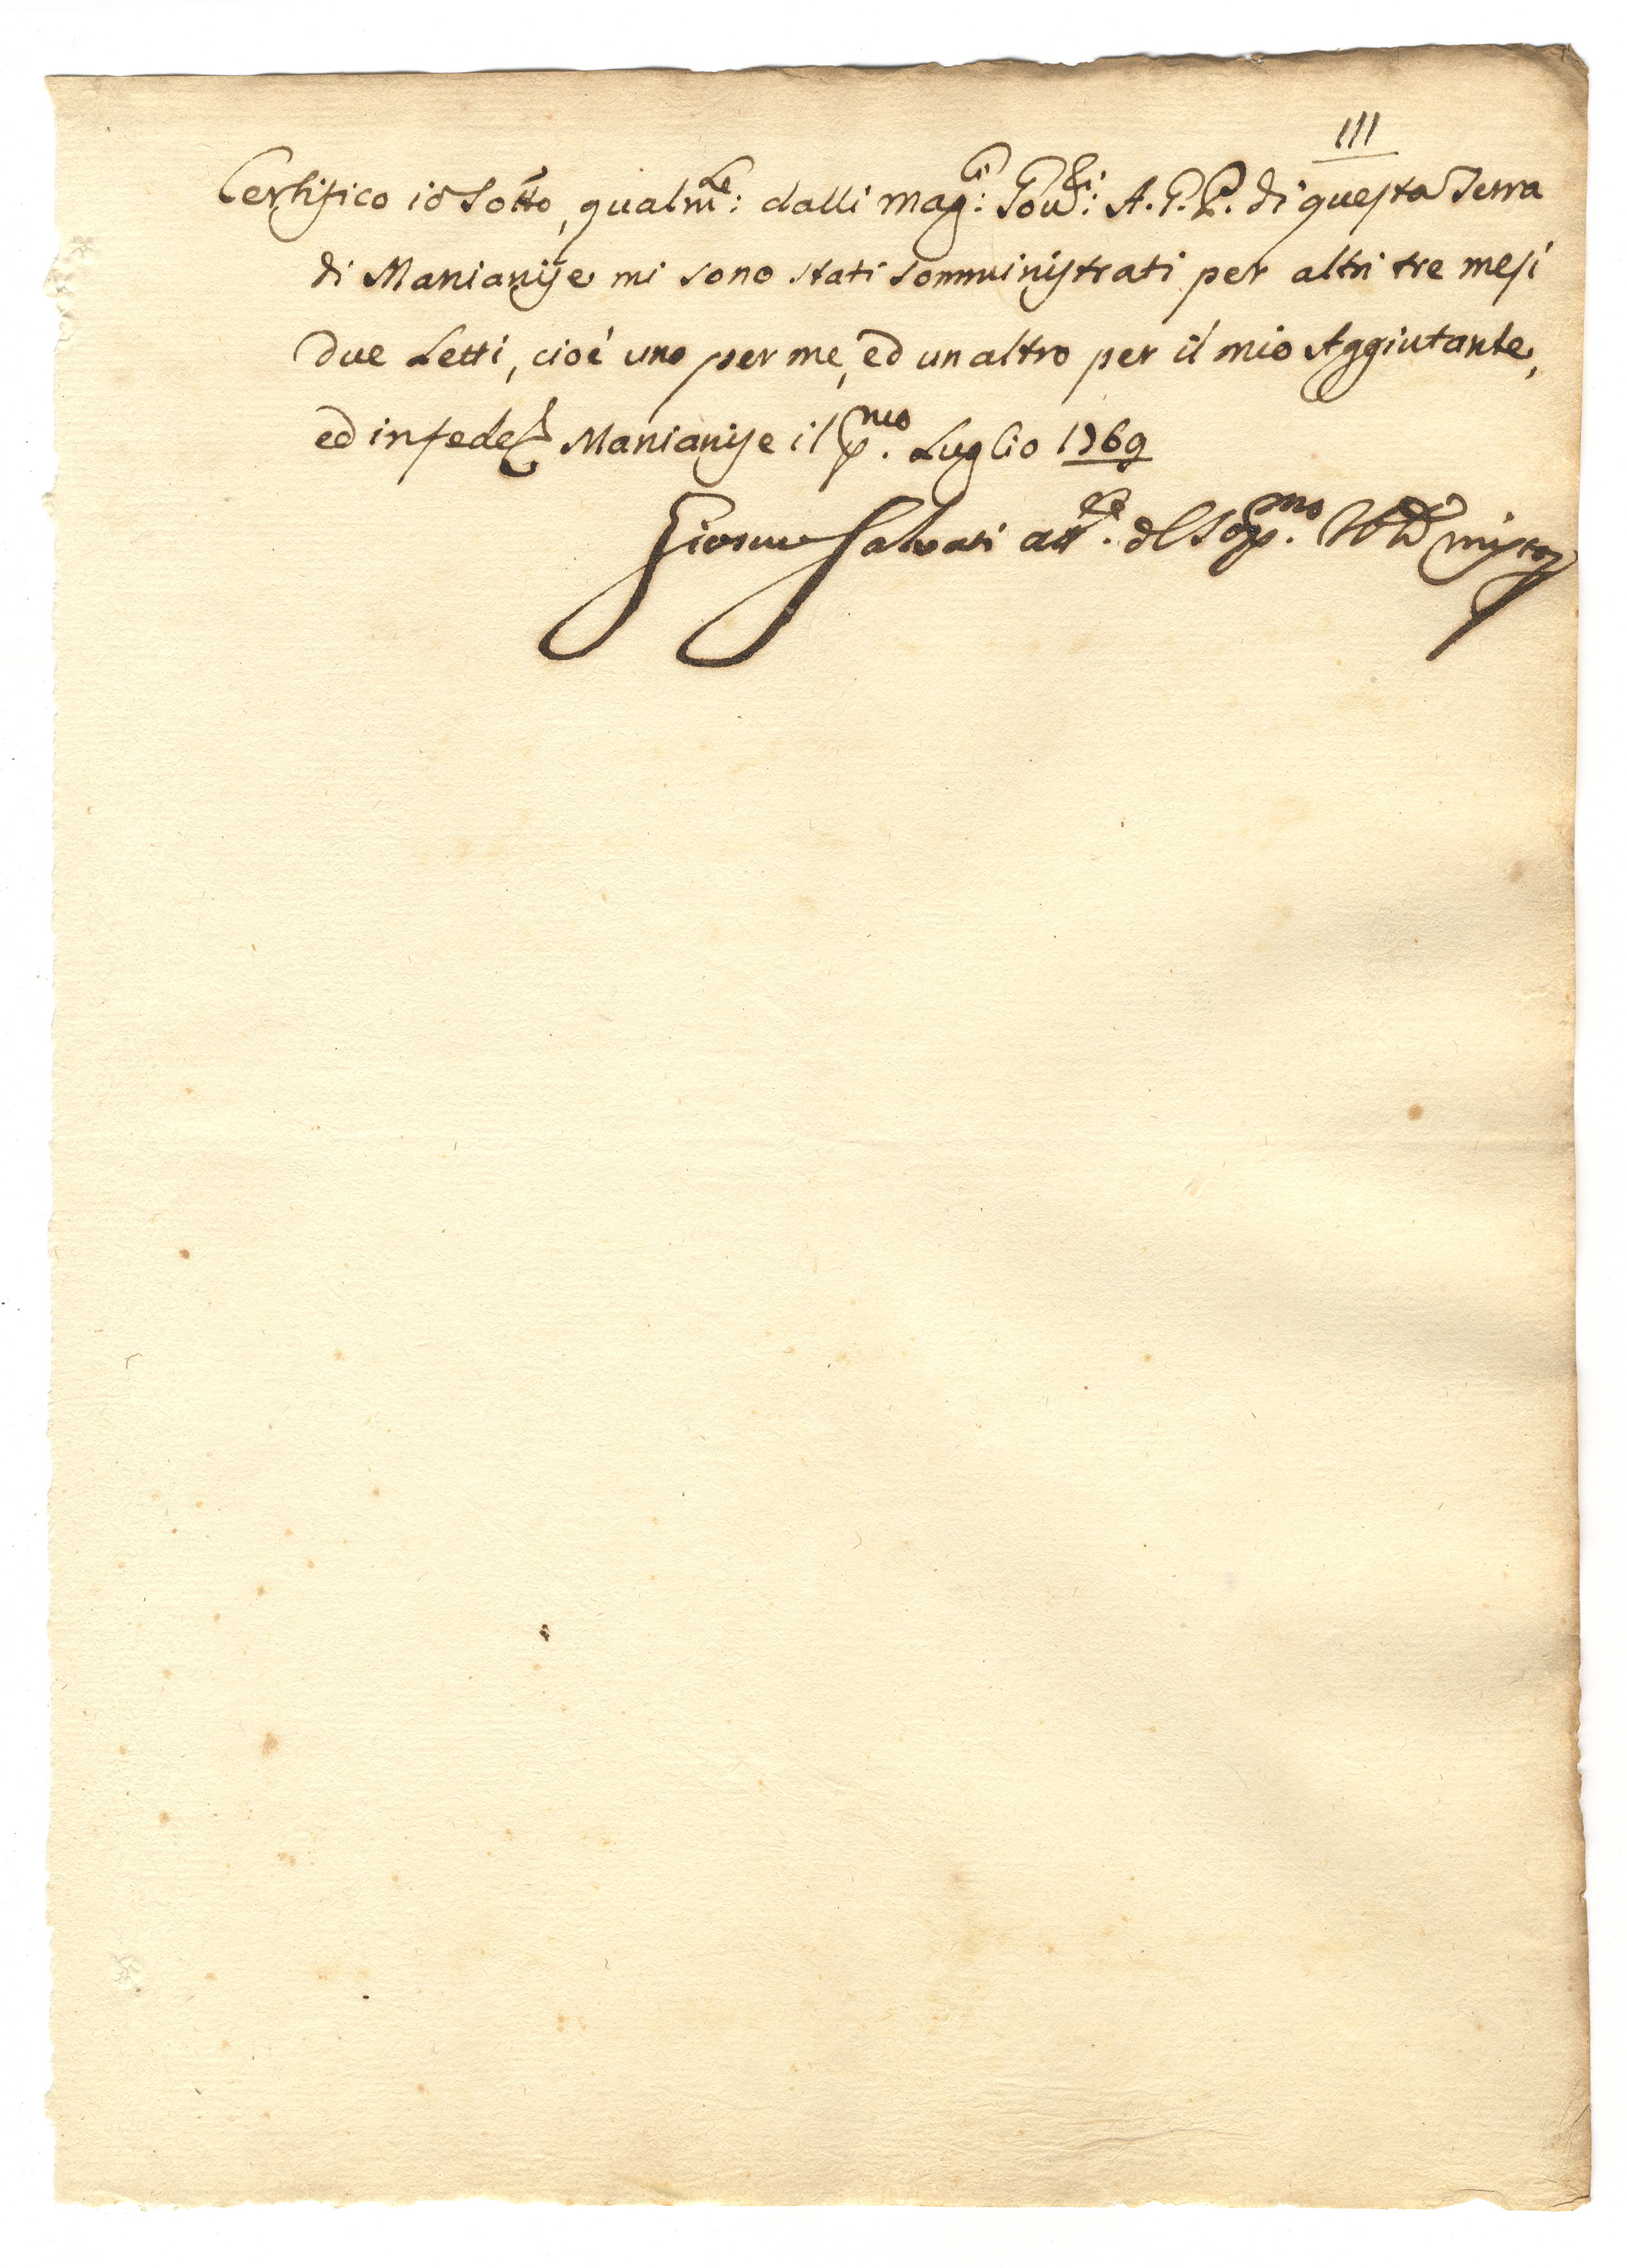 III
Certifico io Sotto, qualm.te: dalli Mag.ci: Gov.ri: A.G.P. di questa Terra
di Manianise mi sono stati somministrati per altri tre mesi
due Letti, cioè uno per me, ed un altro per il mio Aggiutante,
ed in fede Manianise il p.mo Luglio 1769
Giosue Salvati